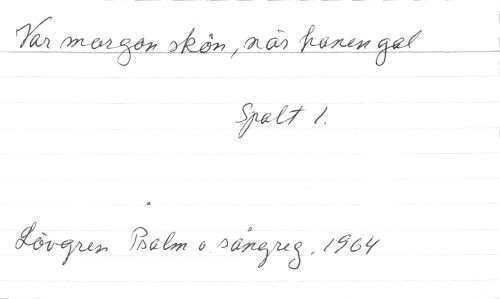 Var morgon skön, när hanen gal
Spalt 1.
Lövgren Psalm o. sångreg. 1964